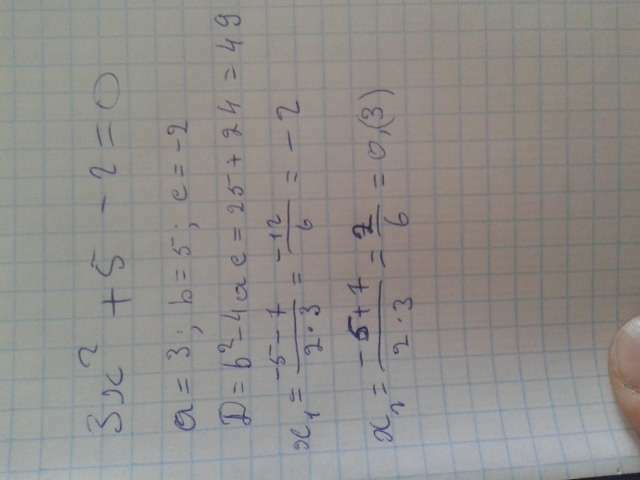 3x² + 5 - 2 = 0
a = 3; b = 5; c = -2
D = b² - 4ac = 25 + 24 = 49
x₁ = (-5 - 7)/(2·3) = -12/6 = -2
x₂ = (-5 + 7)/(2·3) = 2/6 = 0,(3)